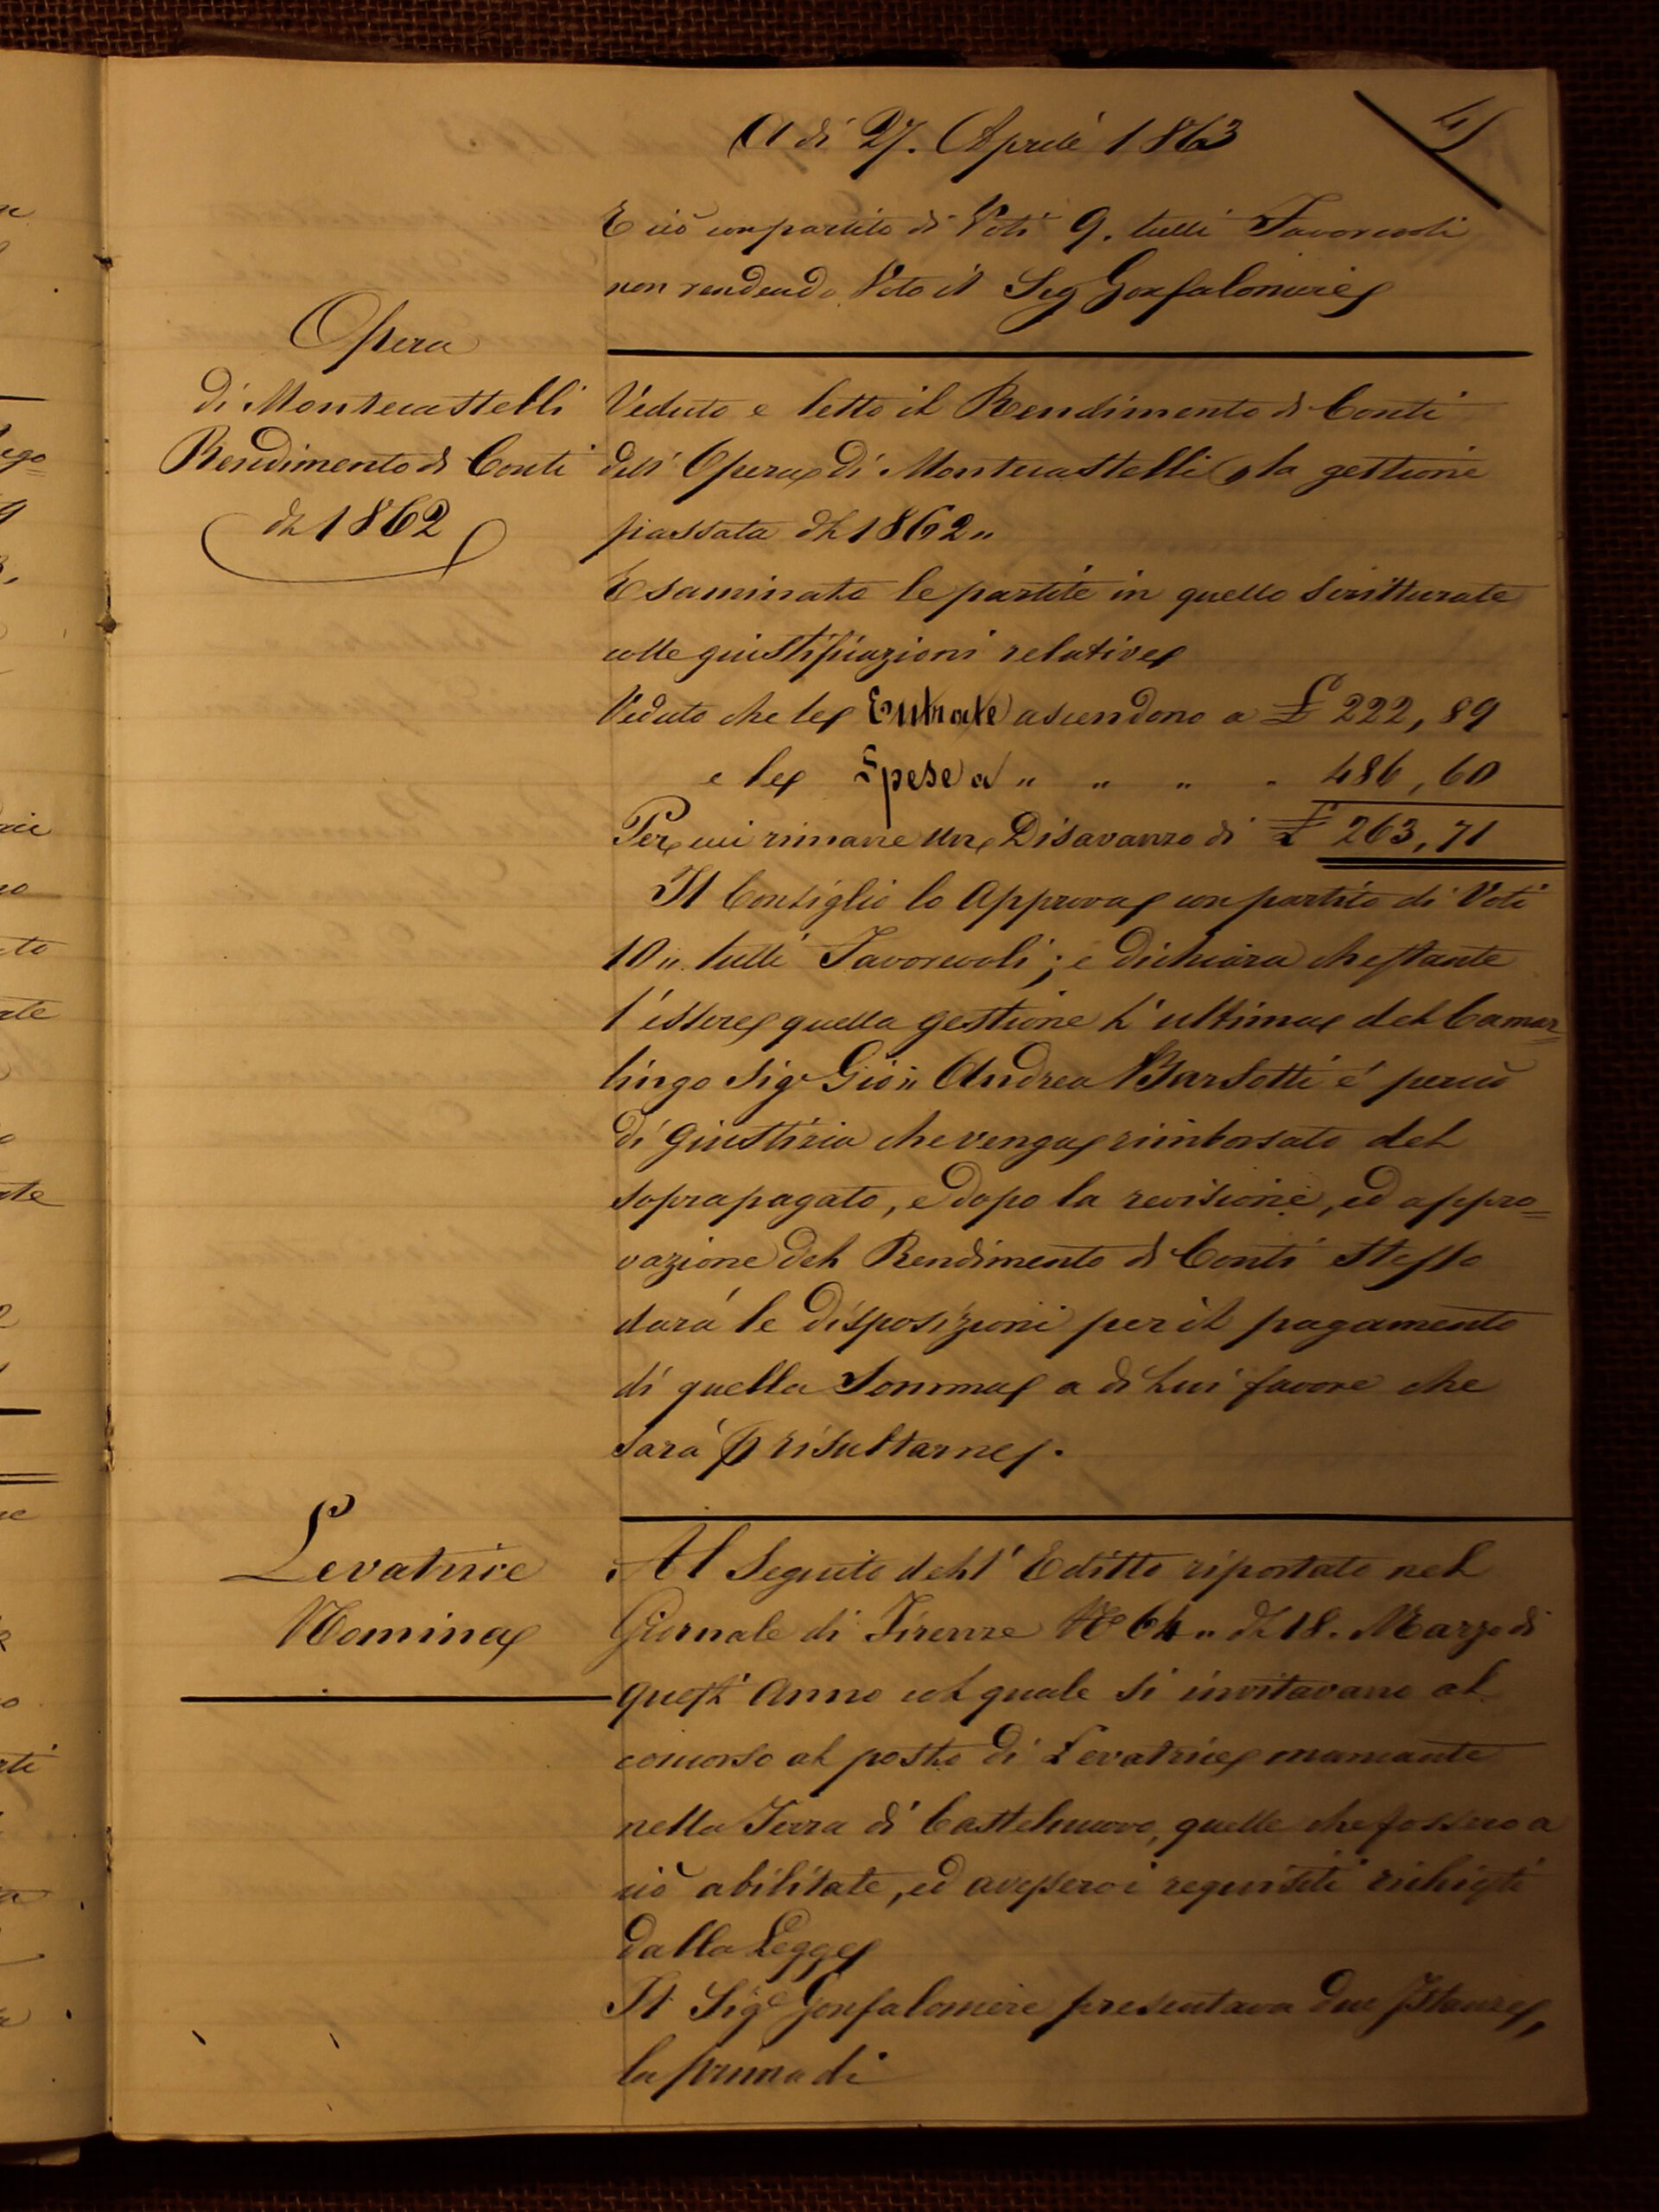 A dì 27. Aprile 1863
E ciò con partito di Voti 9. tutti Favorevoli
non rendendo Voto il Sig Gonfaloniere
Opera
di Montecastelli
Rendimento di Conti
del 1862
Veduto e letto il Rendimento di Conti
dell' Opera di Montecastelli p la gestione
passata del 1862"
Esaminate le partite in quello scritturate
colle giustificazioni relative
Veduto che le Entrate ascendono a £ 222, 89
e le Spese a " " " " 486, 60
Per cui rimane un Disavanzo di £ 263, 71
Il Consiglio lo Approva con partito di Voti
10" tutti Favorevoli; e dichiara che stante
l'essere quella gestione l'ultima del Camar=
lingo Sigr Gio" Andrea Barsotti é perciò
di giustizia che venga rimborsato del
soprapagato, e dopo la revisione, ed appro=
vazione del Rendimento di Conti stesso
dará le disposizioni per il pagamento
di quella Somma a di Lui favore che
sará p risultarne.
Levatrice
Nomina
Al Seguito dell' Editto riportato nel
Giornale di Firenze No 64" del 18. Marzo di
quest' Anno col quale si invitavano al
concorso al posto di Levatrice mancante
nella Terra di Castelnuovo, quelle che fossero a
ciò abilitate, ed avessero i requisiti richiesti
dalla Legge
Il Sige Gonfaloniere presentava due Istanze,
la prima di